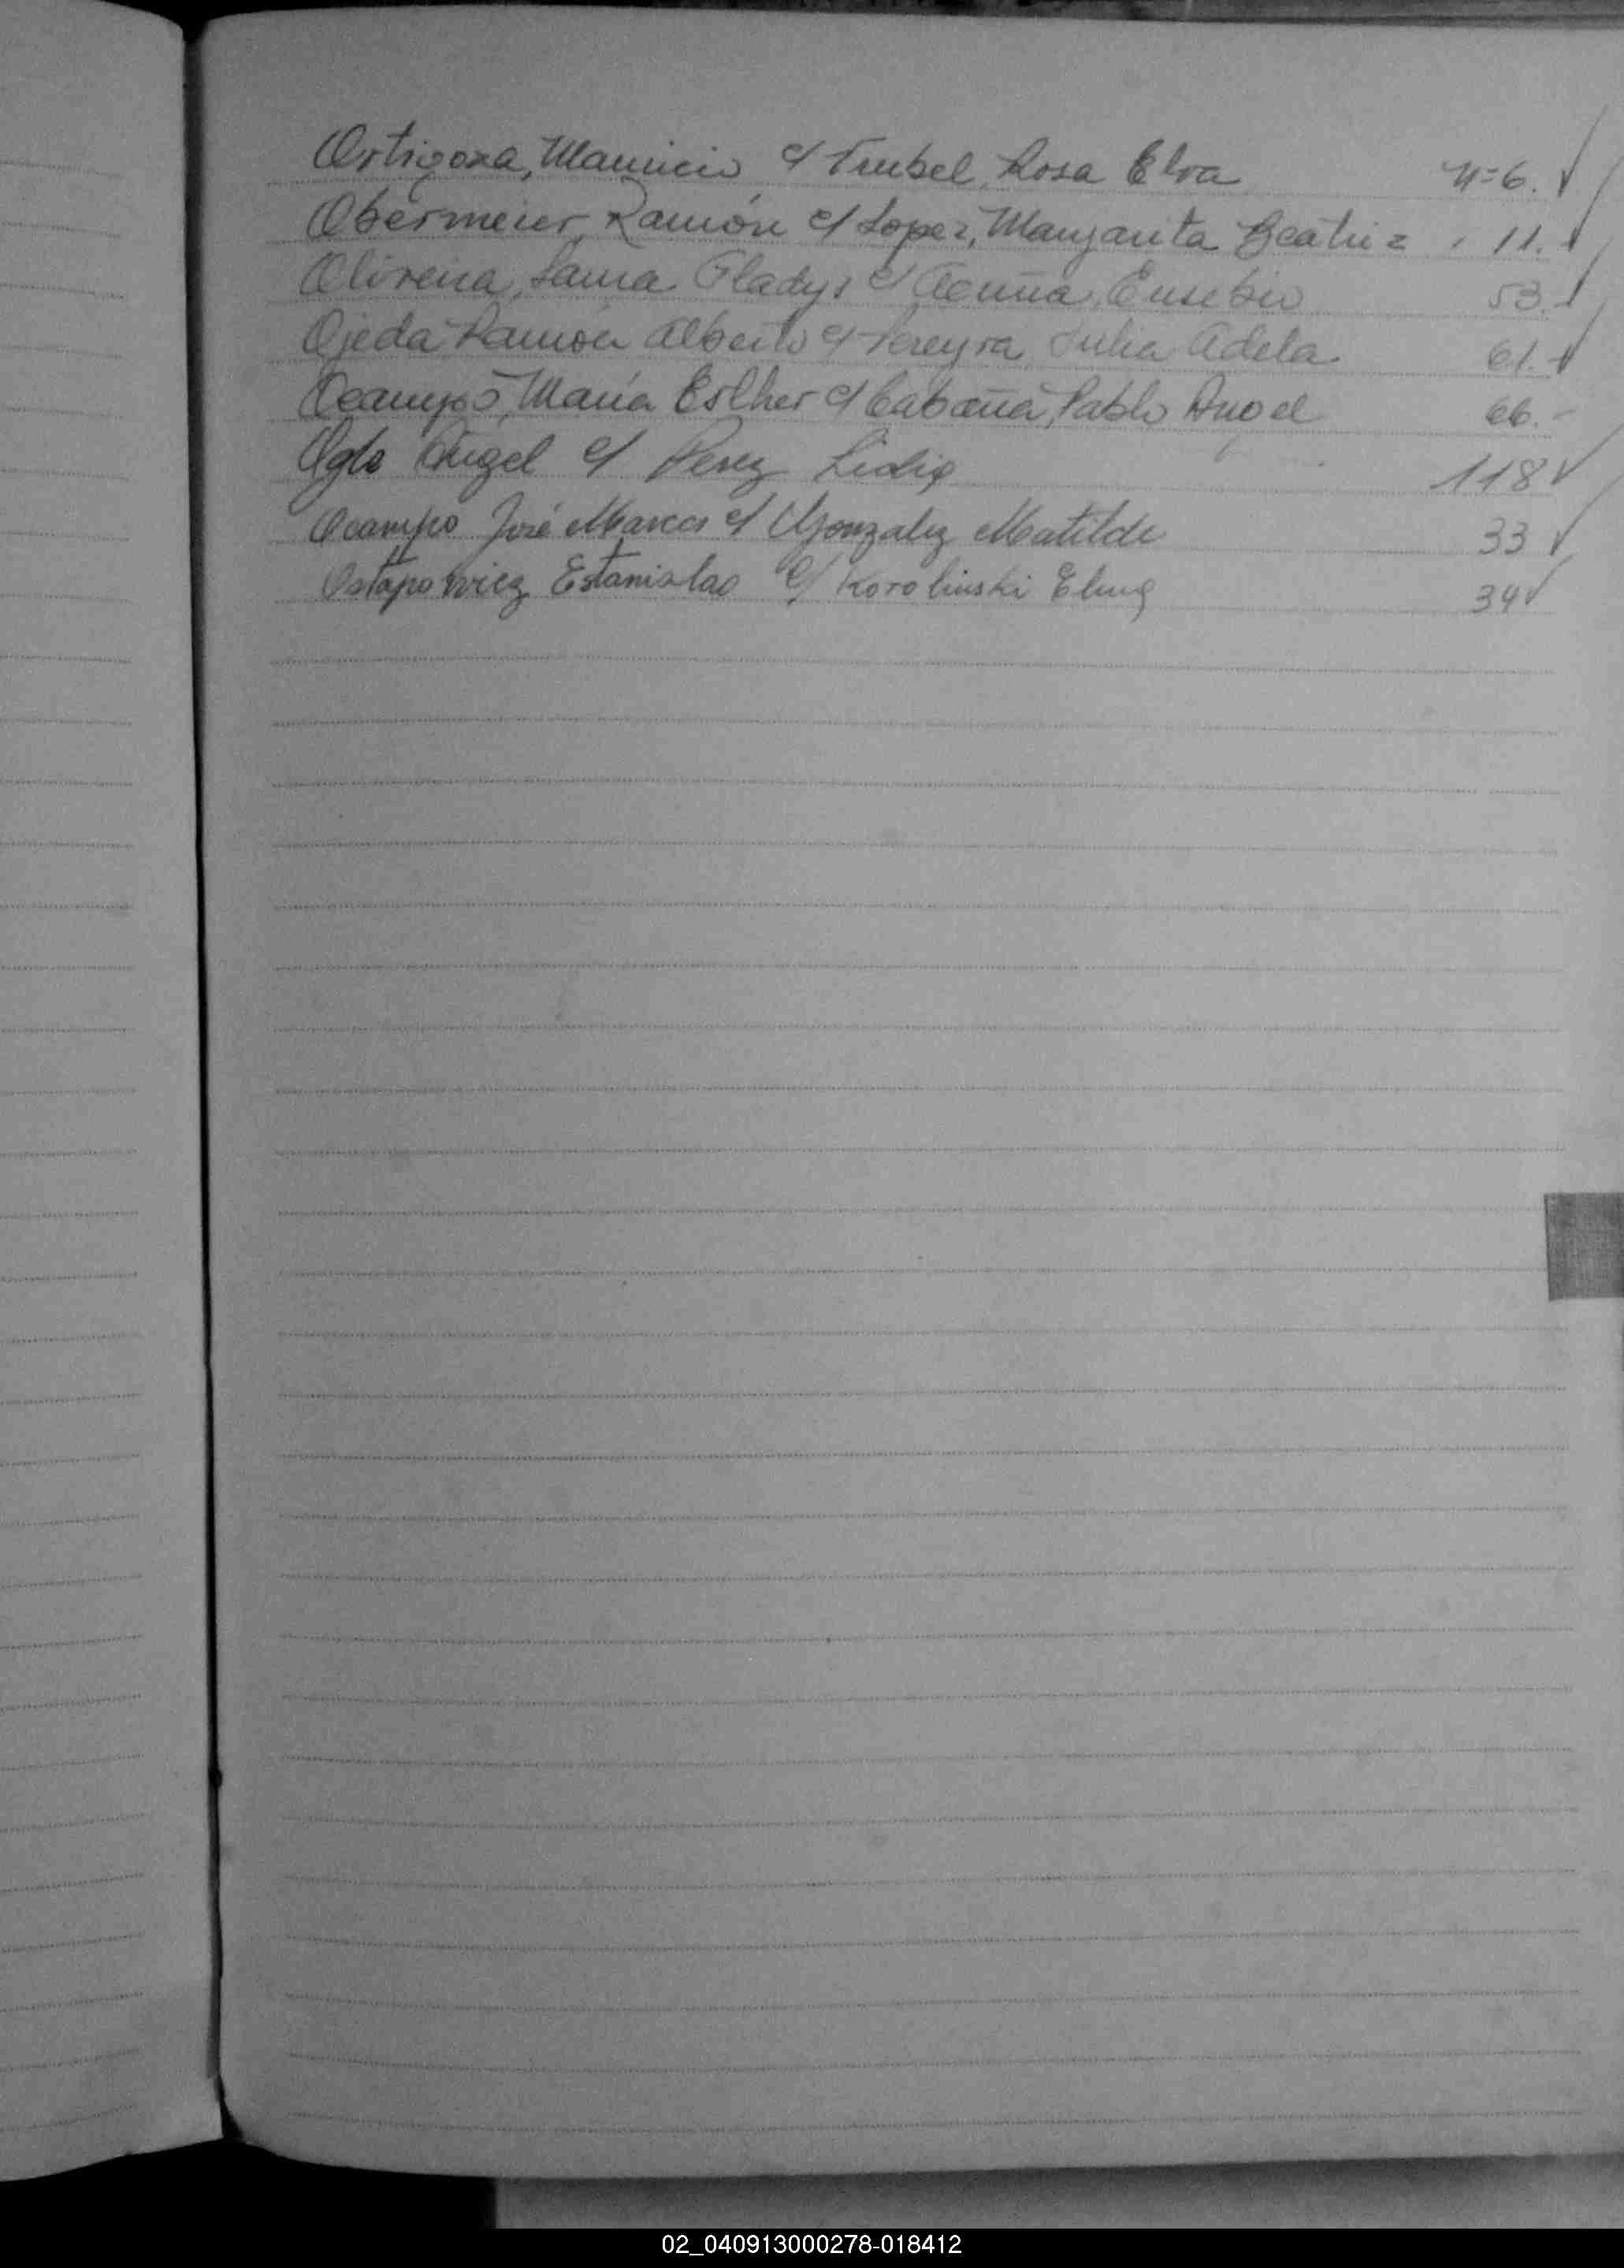 Ortigoza, Mauricio c/ Trubel, Rosa Elva N=6.
Obermeier, Ramón c/ Lopez, Margarita Beatriz " 11.
Oliveira, Laura Gladys c/ Acuña, Eusebio 53.
Ojeda Ramón Alberto c/ Pereyra, Julia Adela 61.
Ocampo, María Esther c/ Cabaña, Pablo Angel 66.-
Oglo Angel c/ Perez Lidia 118
Ocampo José Marcos c/ Gonzalez Matilde 33
Ostapowicz Estanislao c/ Korolinski Elena 34
02_040913000278-018412